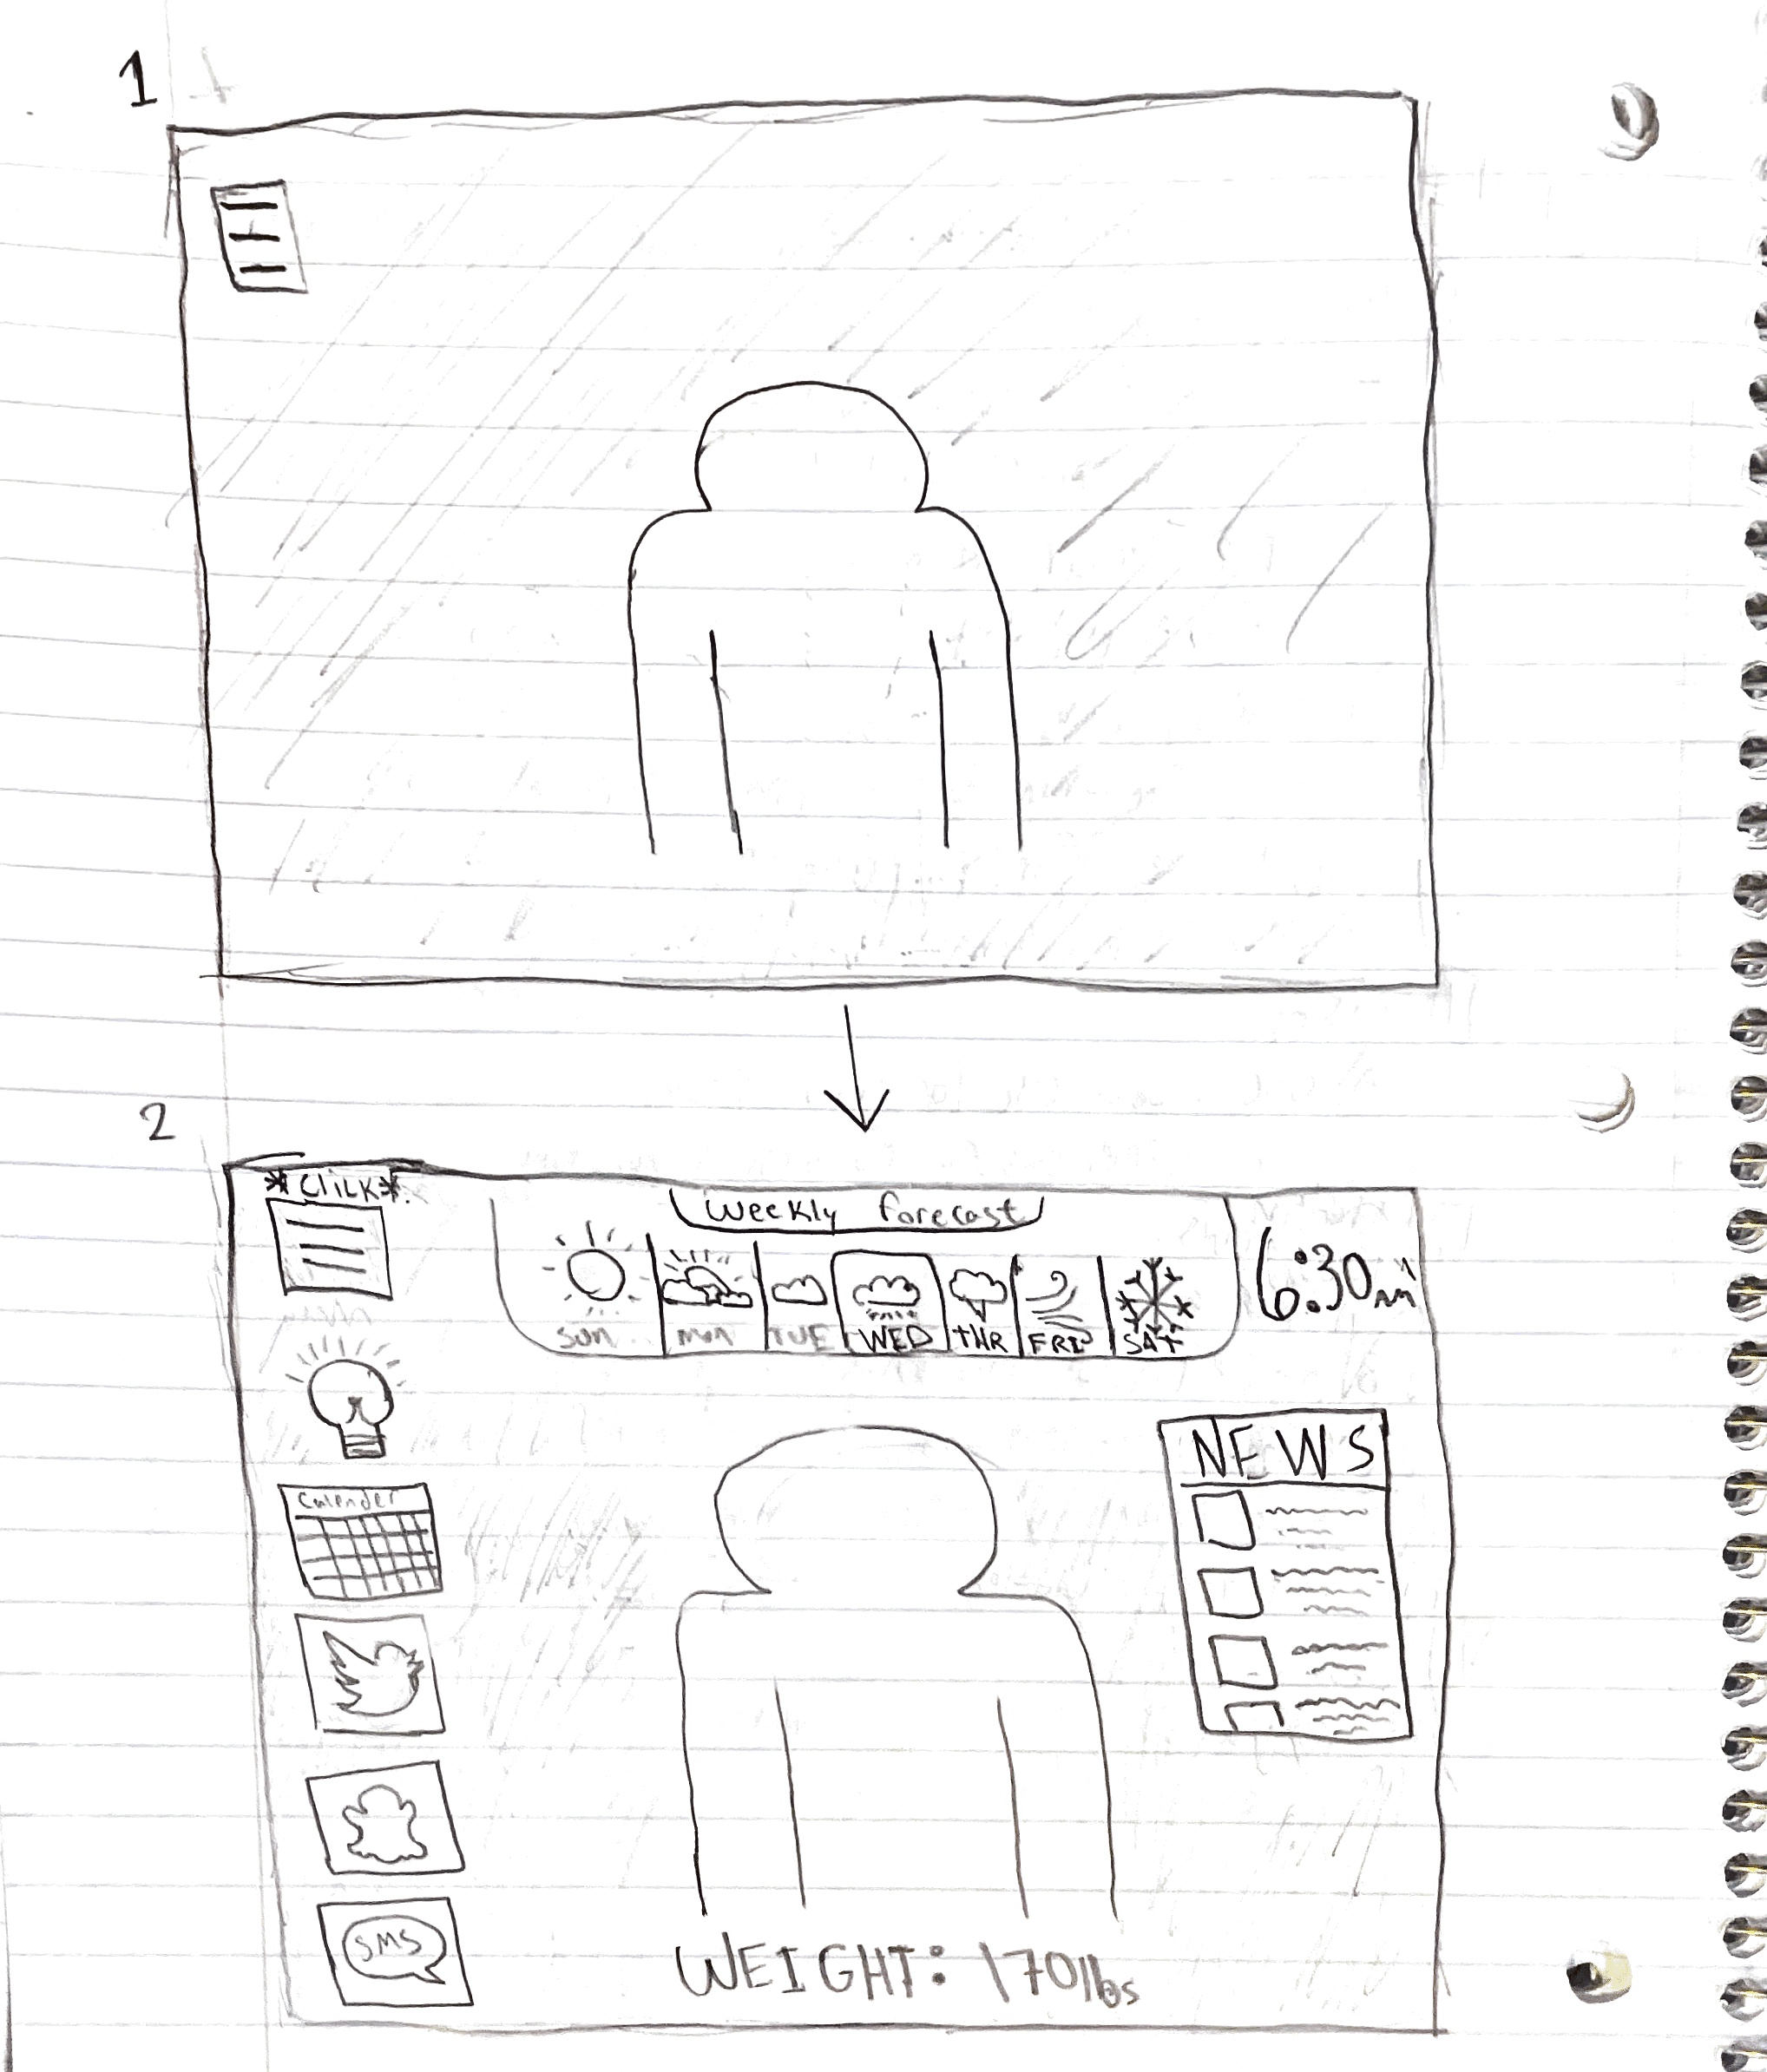 1
2
*CLICK*
Weekly forecast
SUN MON TUE WED THR FRI SAT
6:30
Calender
NEWS
SMS
WEIGHT: 170lbs